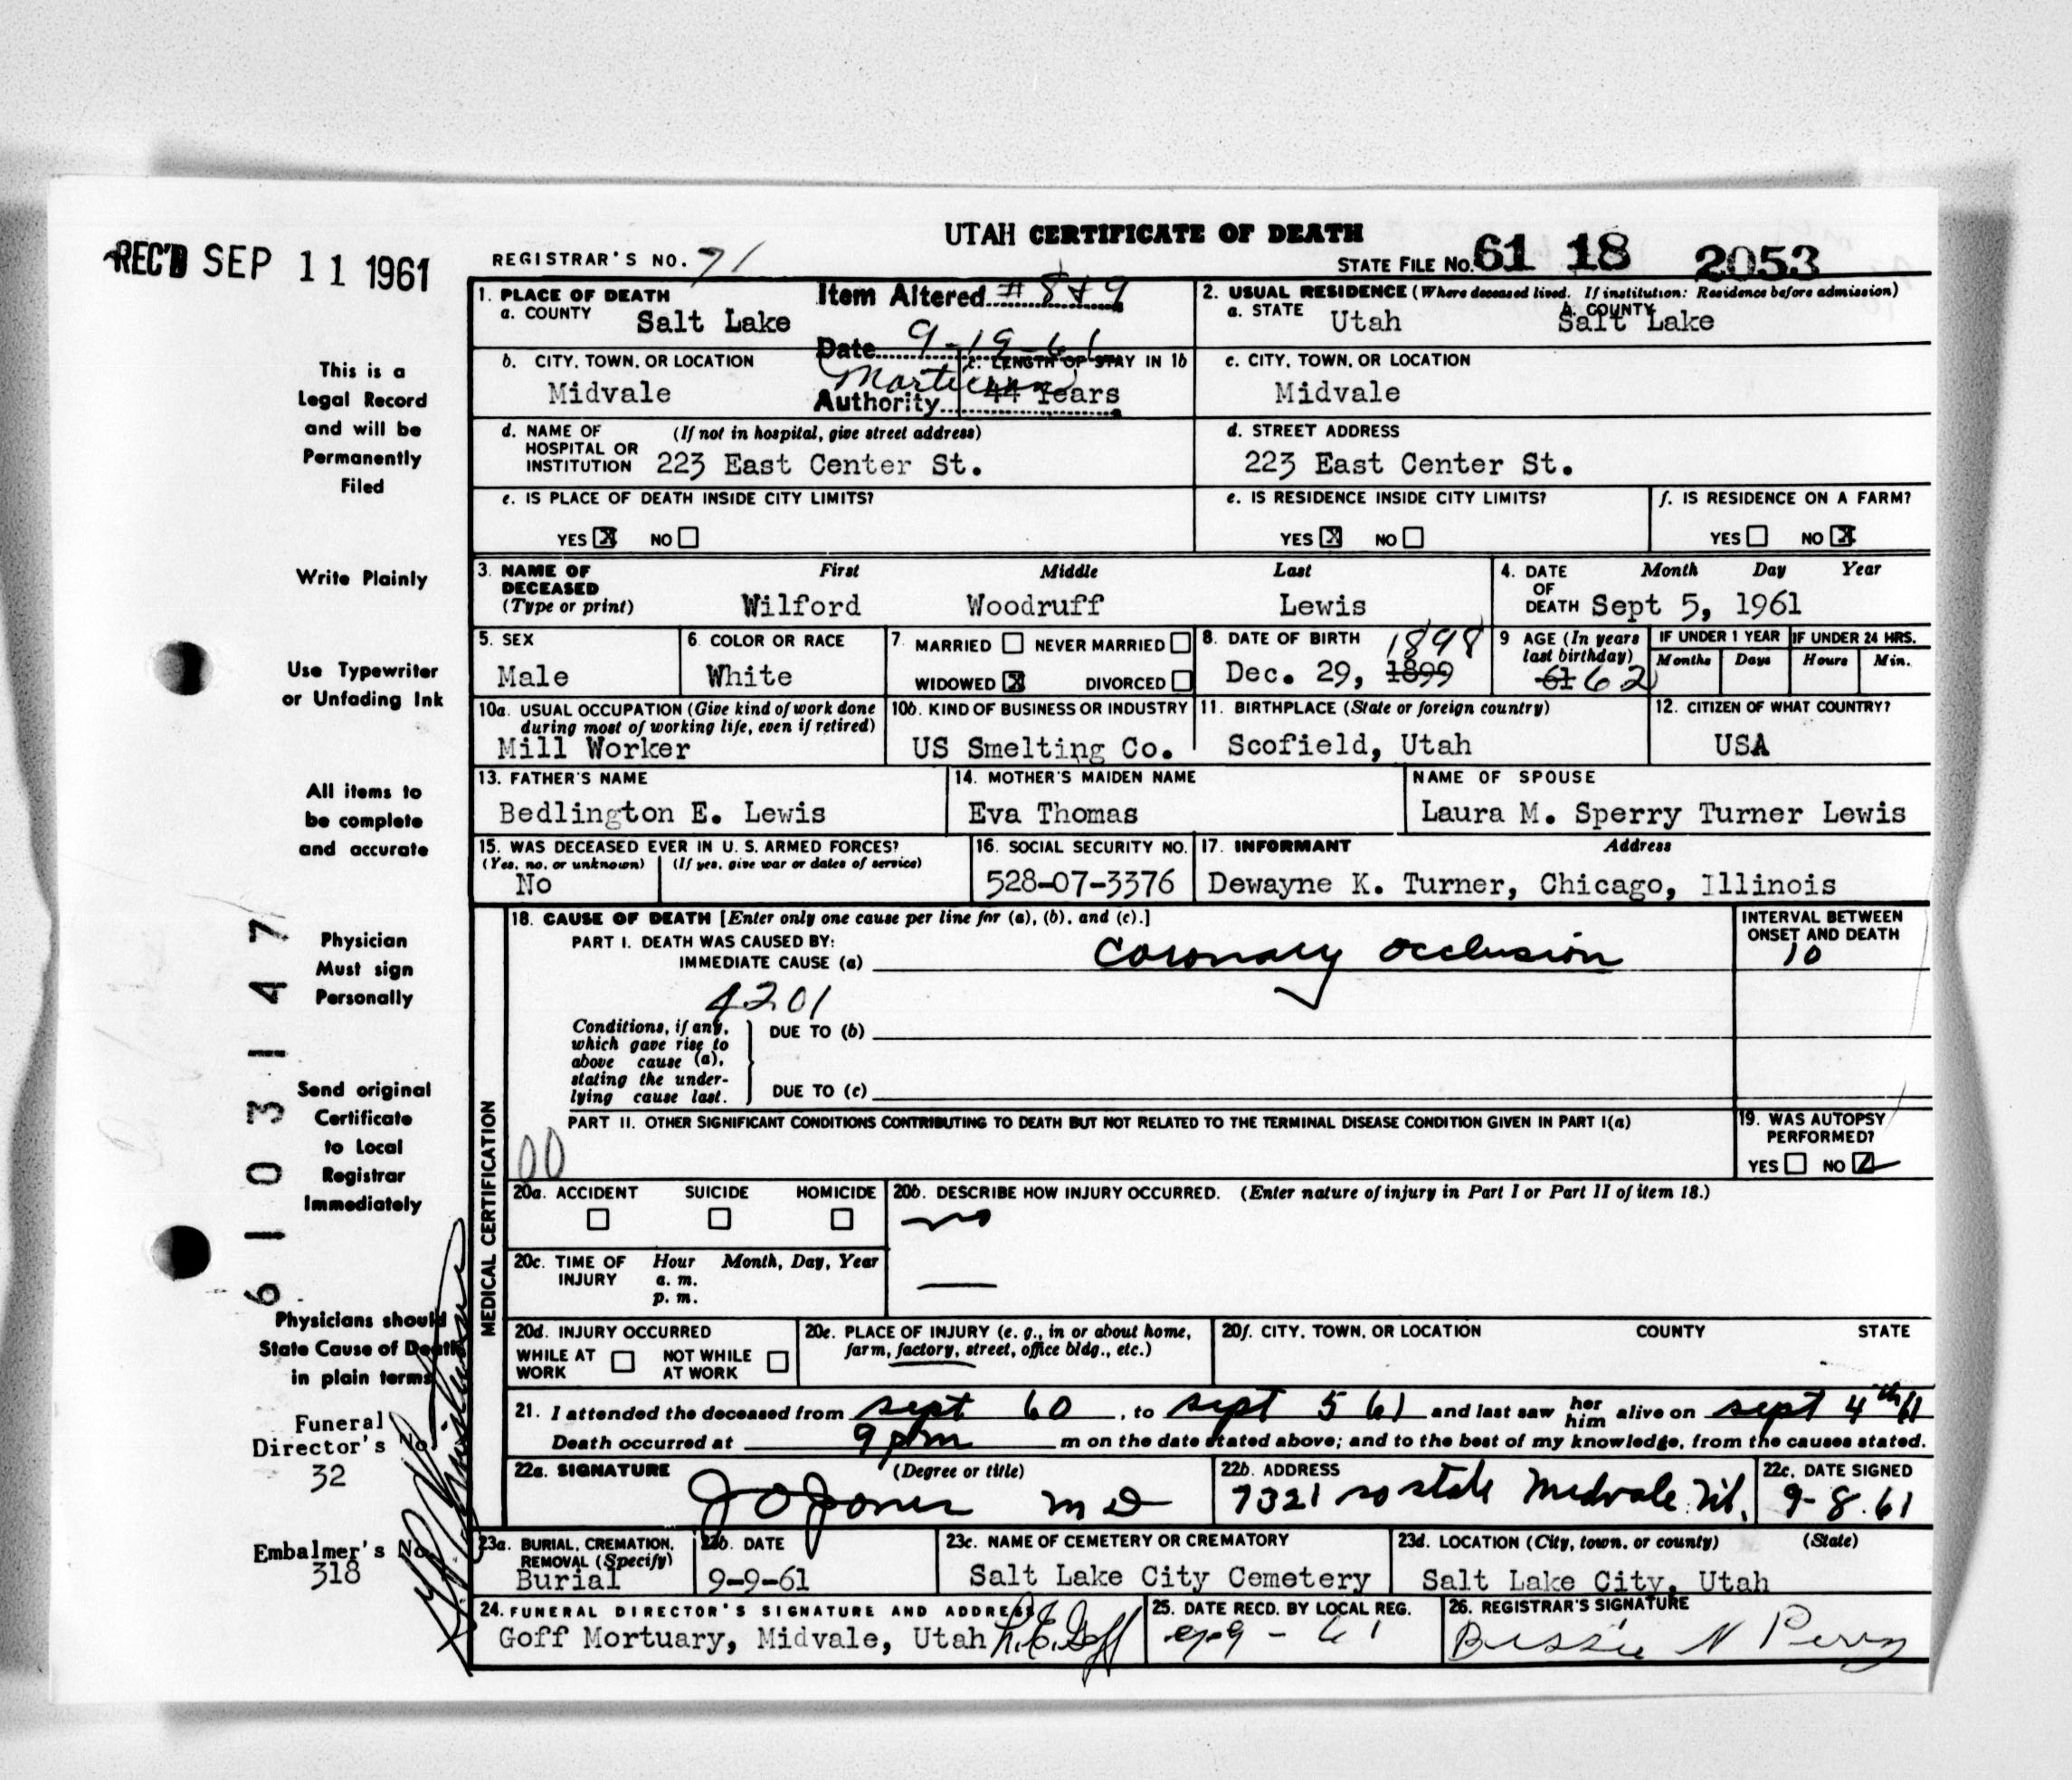 UTAH CERTIFICATE OF DEATH
REC'D SEP 11 1961
REGISTRAR'S NO. 71
STATE FILE NO. 61 18 2053
1. PLACE OF DEATH
a. COUNTY Salt Lake
Item Altered # 8+9
Date 9-19-61
Authority Mortician
2. USUAL RESIDENCE (Where deceased lived. If institution: Residence before admission)
a. STATE Utah
b. COUNTY Salt Lake
b. CITY, TOWN, OR LOCATION Midvale
c. LENGTH OF STAY IN 1b
44 Years
c. CITY, TOWN, OR LOCATION
Midvale
d. NAME OF HOSPITAL OR INSTITUTION (If not in hospital, give street address)
223 East Center St.
d. STREET ADDRESS
223 East Center St.
e. IS PLACE OF DEATH INSIDE CITY LIMITS?
YES X NO
e. IS RESIDENCE INSIDE CITY LIMITS?
YES X NO
f. IS RESIDENCE ON A FARM?
YES NO X
3. NAME OF DECEASED (Type or print)
First Middle Last
Wilford Woodruff Lewis
4. DATE OF DEATH Month Day Year
Sept 5, 1961
5. SEX
Male
6. COLOR OR RACE
White
7. MARRIED NEVER MARRIED
WIDOWED X DIVORCED
8. DATE OF BIRTH 1898
Dec. 29, 1899
9 AGE (In years last birthday)
61 62
IF UNDER 1 YEAR
Months Days
IF UNDER 24 HRS.
Hours Min.
10a. USUAL OCCUPATION (Give kind of work done during most of working life, even if retired)
Mill Worker
10b. KIND OF BUSINESS OR INDUSTRY
US Smelting Co.
11. BIRTHPLACE (State or foreign country)
Scofield, Utah
12. CITIZEN OF WHAT COUNTRY?
USA
13. FATHER'S NAME
Bedlington E. Lewis
14. MOTHER'S MAIDEN NAME
Eva Thomas
NAME OF SPOUSE
Laura M. Sperry Turner Lewis
15. WAS DECEASED EVER IN U. S. ARMED FORCES?
(Yes, no, or unknown) (If yes, give war or dates of service)
No
16. SOCIAL SECURITY NO.
528-07-3376
17. INFORMANT Address
Dewayne K. Turner, Chicago, Illinois
MEDICAL CERTIFICATION
18. CAUSE OF DEATH [Enter only one cause per line for (a), (b), and (c).]
PART I. DEATH WAS CAUSED BY:
IMMEDIATE CAUSE (a) Coronary occlusion
INTERVAL BETWEEN ONSET AND DEATH
10
4201
Conditions, if any, which gave rise to above cause (a), stating the underlying cause last.
DUE TO (b)
DUE TO (c)
PART II. OTHER SIGNIFICANT CONDITIONS CONTRIBUTING TO DEATH BUT NOT RELATED TO THE TERMINAL DISEASE CONDITION GIVEN IN PART I(a)
00
19. WAS AUTOPSY PERFORMED?
YES NO
20a. ACCIDENT SUICIDE HOMICIDE
20b. DESCRIBE HOW INJURY OCCURRED. (Enter nature of injury in Part I or Part II of item 18.)
no
20c. TIME OF INJURY Hour Month, Day, Year
a. m.
p. m.
20d. INJURY OCCURRED
WHILE AT WORK NOT WHILE AT WORK
20e. PLACE OF INJURY (e. g., in or about home, farm, factory, street, office bldg., etc.)
20f. CITY, TOWN, OR LOCATION COUNTY STATE
21. I attended the deceased from sept 60, to sept 5 61 and last saw her him alive on sept 4th 61
Death occurred at 9 pm m on the date stated above; and to the best of my knowledge, from the causes stated.
22a. SIGNATURE (Degree or title)
J O Jones M D
22b. ADDRESS
7321 so state Midvale Ut.
22c. DATE SIGNED
9-8.61
23a. BURIAL, CREMATION, REMOVAL (Specify)
Burial
23b. DATE
9-9-61
23c. NAME OF CEMETERY OR CREMATORY
Salt Lake City Cemetery
23d. LOCATION (City, town, or county) (State)
Salt Lake City, Utah
24. FUNERAL DIRECTOR'S SIGNATURE AND ADDRESS
Goff Mortuary, Midvale, Utah
25. DATE RECD. BY LOCAL REG.
26. REGISTRAR'S SIGNATURE
Bessie N Perry
This is a
Legal Record
and will be
Permanently
Filed
Write Plainly
Use Typewriter
or Unfading Ink
All items to
be complete
and accurate
Physician
Must sign
Personally
Send original
Certificate
to Local
Registrar
Immediately
Physicians should
State Cause of Death
in plain terms
Funeral
Director's No
32
Embalmer's No
318
61 03147